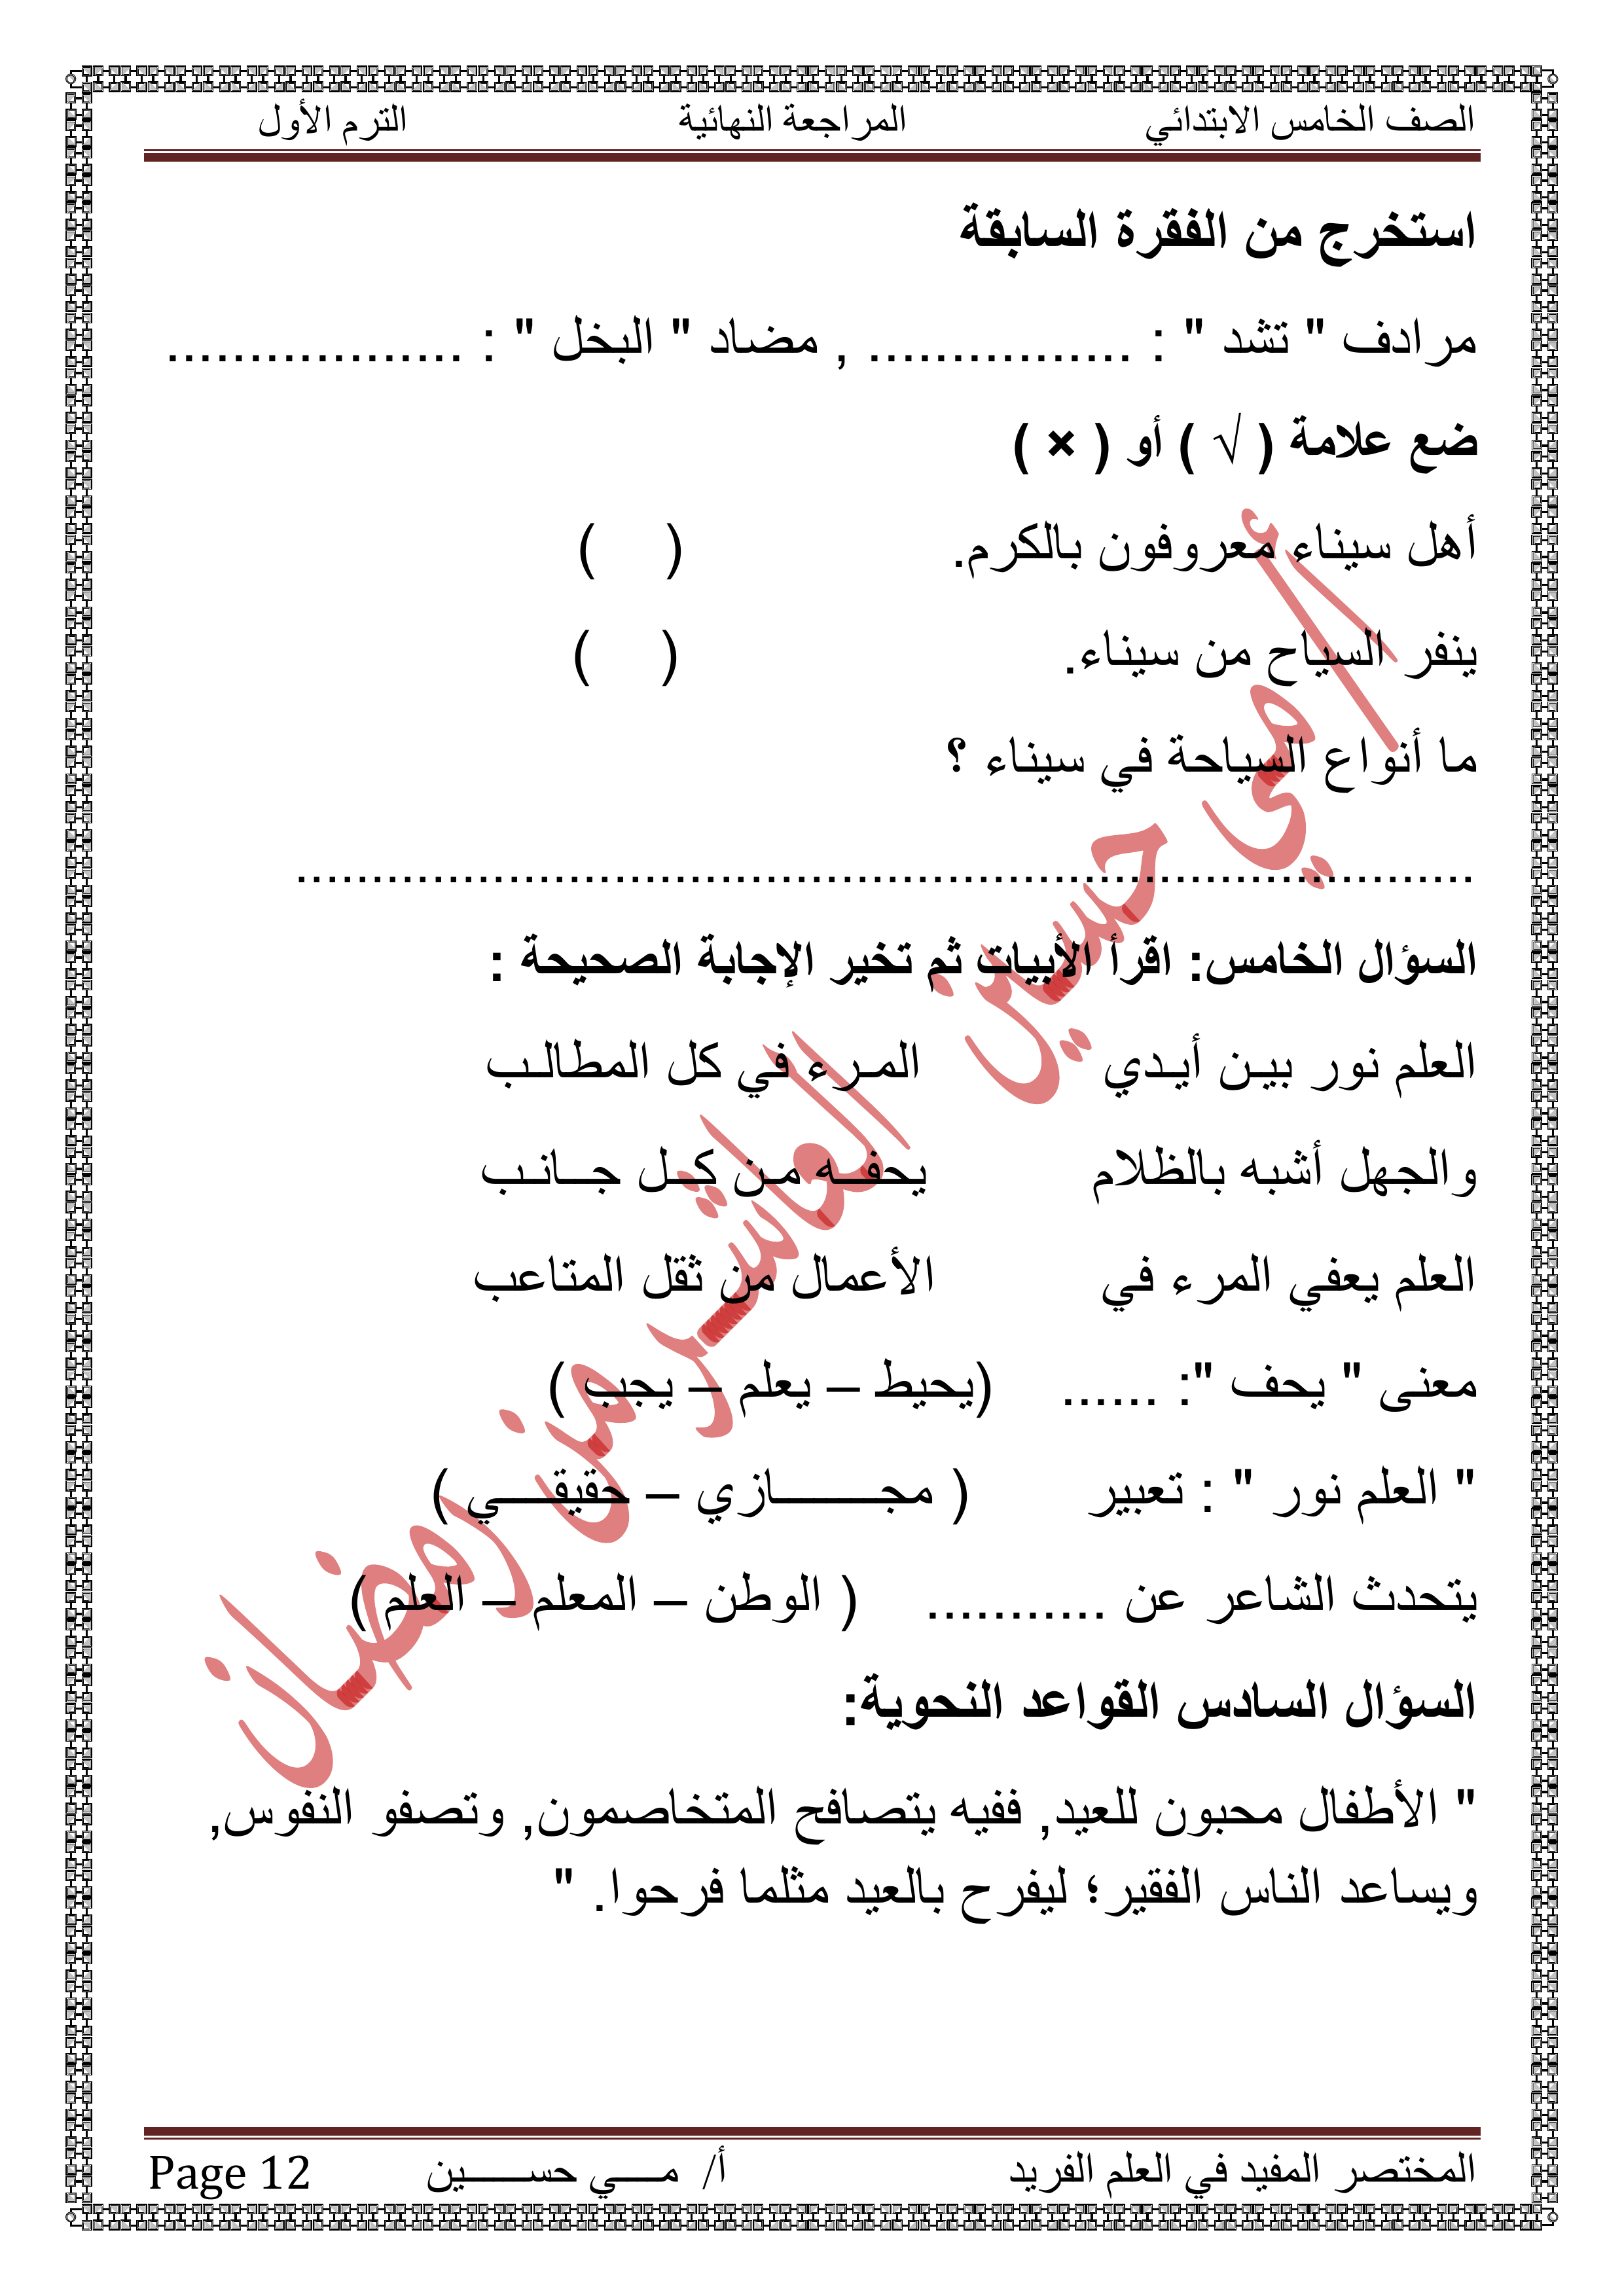 الصف الخامس الابتدائي المراجعة النهائية الترم الأول
استخرج من الفقرة السابقة
مرادف " تشد " : ................ , مضاد " البخل " : ..................
ضع علامة ( √ ) أو ( × )
أهل سيناء معروفون بالكرم. ( )
ينفر السياح من سيناء. ( )
ما أنواع السياحة في سيناء ؟
..............................................................................
السؤال الخامس: اقرأ الأبيات ثم تخير الإجابة الصحيحة :
العلم نور بيـن أيـدي المـرء في كل المطالـب
والجهل أشبه بالظلام يحفــه مـن كــل جــانـب
العلم يعفي المرء في الأعمال من ثقل المتاعب
معنى " يحف ": ...... (يحيط – يعلم – يجب )
" العلم نور " : تعبير ( مجــــــــازي – حقيقــــي )
يتحدث الشاعر عن ........... ( الوطن – المعلم – العلم )
السؤال السادس القواعد النحوية:
" الأطفال محبون للعيد, ففيه يتصافح المتخاصمون, وتصفو النفوس,
ويساعد الناس الفقير؛ ليفرح بالعيد مثلما فرحوا. "
أ/مي حسين العاشر من رمضان
المختصر المفيد في العلم الفريد أ/ مـــي حســـــين Page 12